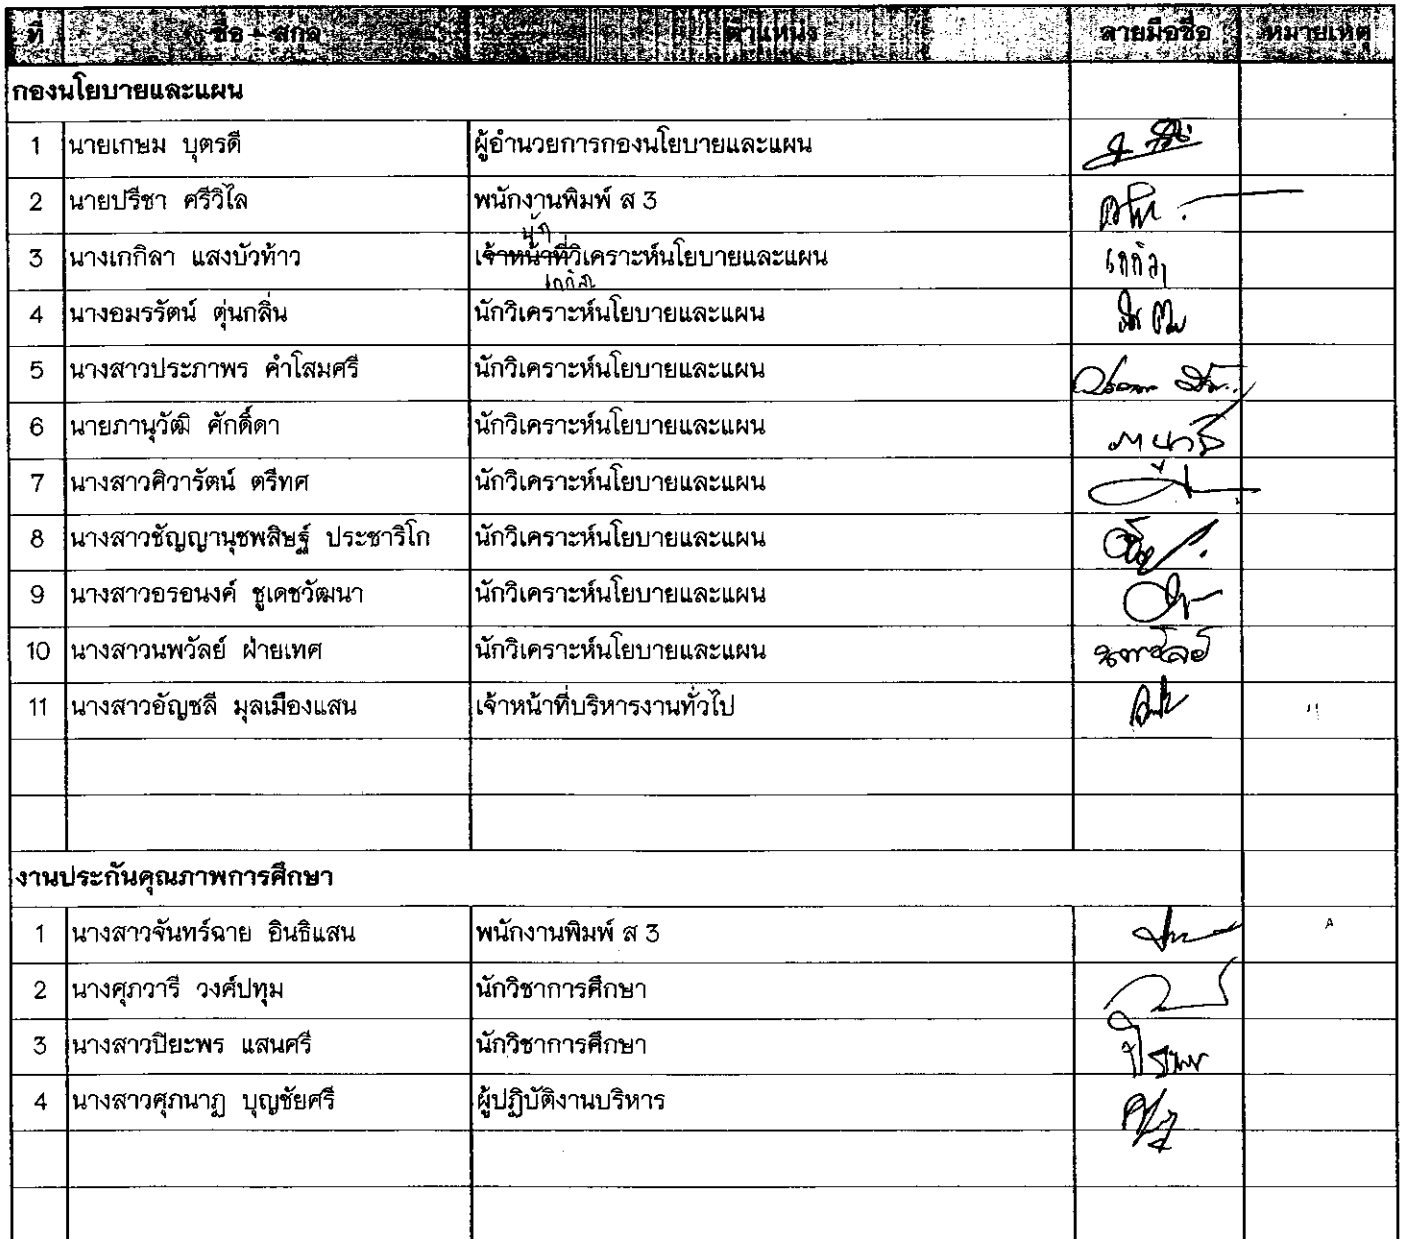 ที่ ชื่อ - สกุล ตำแหน่ง ลายมือชื่อ หมายเหตุ
กองนโยบายและแผน
1 นายเกษม บุตรดี ผู้อำนวยการกองนโยบายและแผน
2 นายปรีชา ศรีวิไล พนักงานพิมพ์ ส 3
นัก
3 นางเกกิลา แสงบัวท้าว เจ้าหน้าที่วิเคราะห์นโยบายและแผน เกกิลา
เกกิลา
4 นางอมรรัตน์ ตุ่นกลิ่น นักวิเคราะห์นโยบายและแผน
5 นางสาวประภาพร คำโสมศรี นักวิเคราะห์นโยบายและแผน
6 นายภานุวัฒิ ศักดิ์ดา นักวิเคราะห์นโยบายและแผน
7 นางสาวศิวารัตน์ ตรีทศ นักวิเคราะห์นโยบายและแผน
8 นางสาวชัญญานุชพสิษฐ์ ประชาริโก นักวิเคราะห์นโยบายและแผน
9 นางสาวอรอนงค์ ชูเดชวัฒนา นักวิเคราะห์นโยบายและแผน
10 นางสาวนพวัลย์ ฝ่ายเทศ นักวิเคราะห์นโยบายและแผน นพวัลย์
11 นางสาวอัญชลี มุลเมืองแสน เจ้าหน้าที่บริหารงานทั่วไป
งานประกันคุณภาพการศึกษา
1 นางสาวจันทร์ฉาย อินธิแสน พนักงานพิมพ์ ส 3
2 นางศุภวารี วงศ์ปทุม นักวิชาการศึกษา
3 นางสาวปิยะพร แสนศรี นักวิชาการศึกษา
4 นางสาวศุภนาฏ บุญชัยศรี ผู้ปฏิบัติงานบริหาร